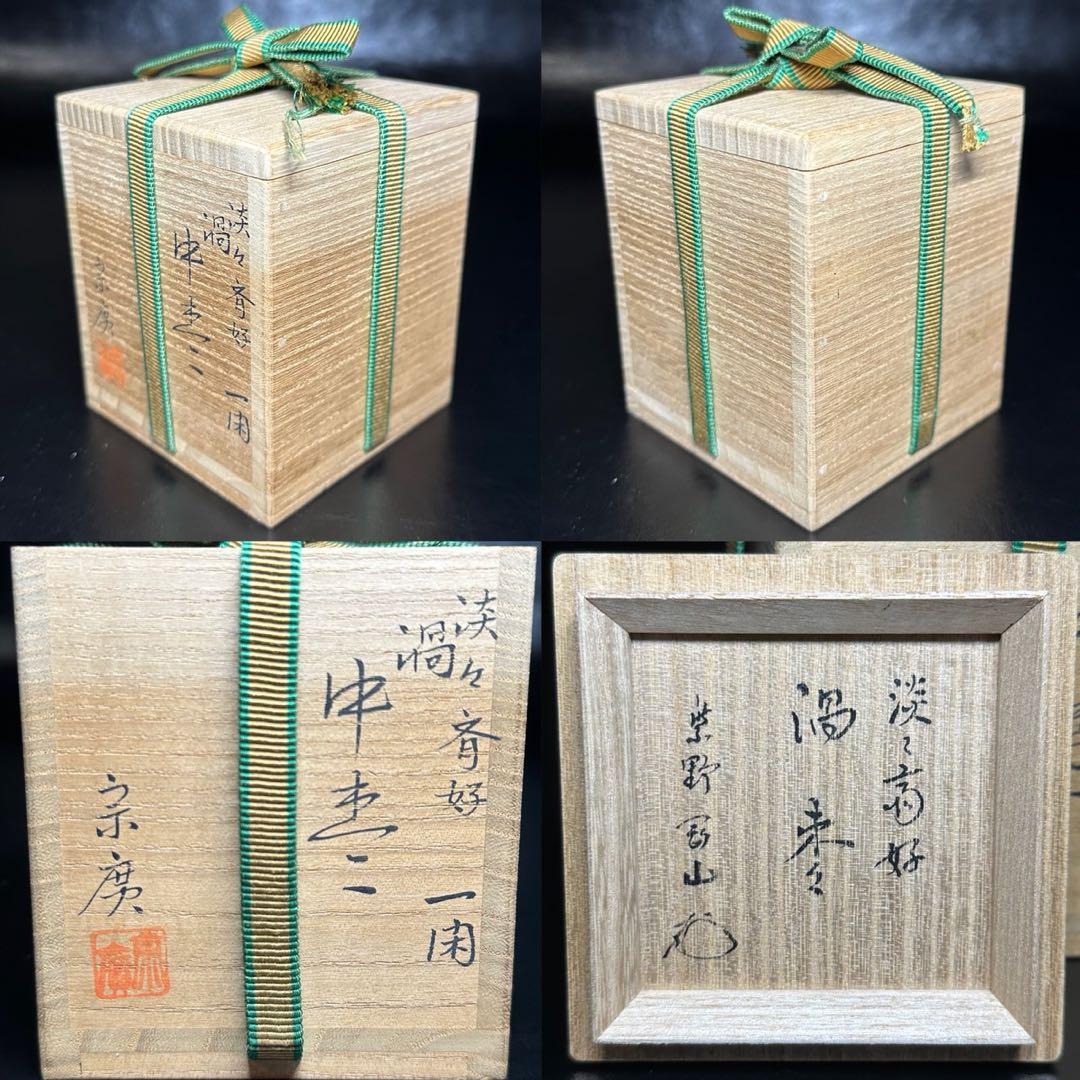 淡々斎好
一閑
渦
中棗
宗廣
淡々斎好
一閑
渦
中棗
宗廣
宗廣
淡々斎好
渦棗
紫野
山